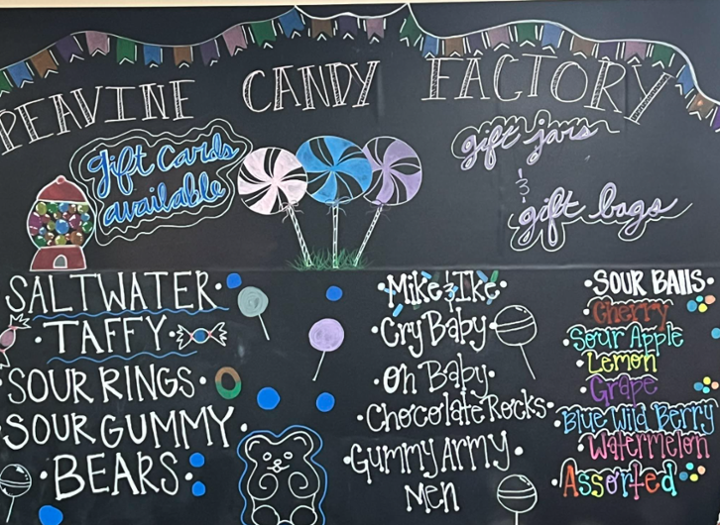 PEAVINE CANDY FACTORY
Gift Cards
available
gift jars
&
gift bags
SALTWATER
TAFFY
SOUR RINGS
SOUR GUMMY
BEARS
Mike & Ike
Cry Baby
Oh Baby
Chocolate Rocks
Gummy Army
Men
SOUR BALLS
Cherry
Sour Apple
Lemon
Grape
Blue Wild Berry
Watermelon
Assorted